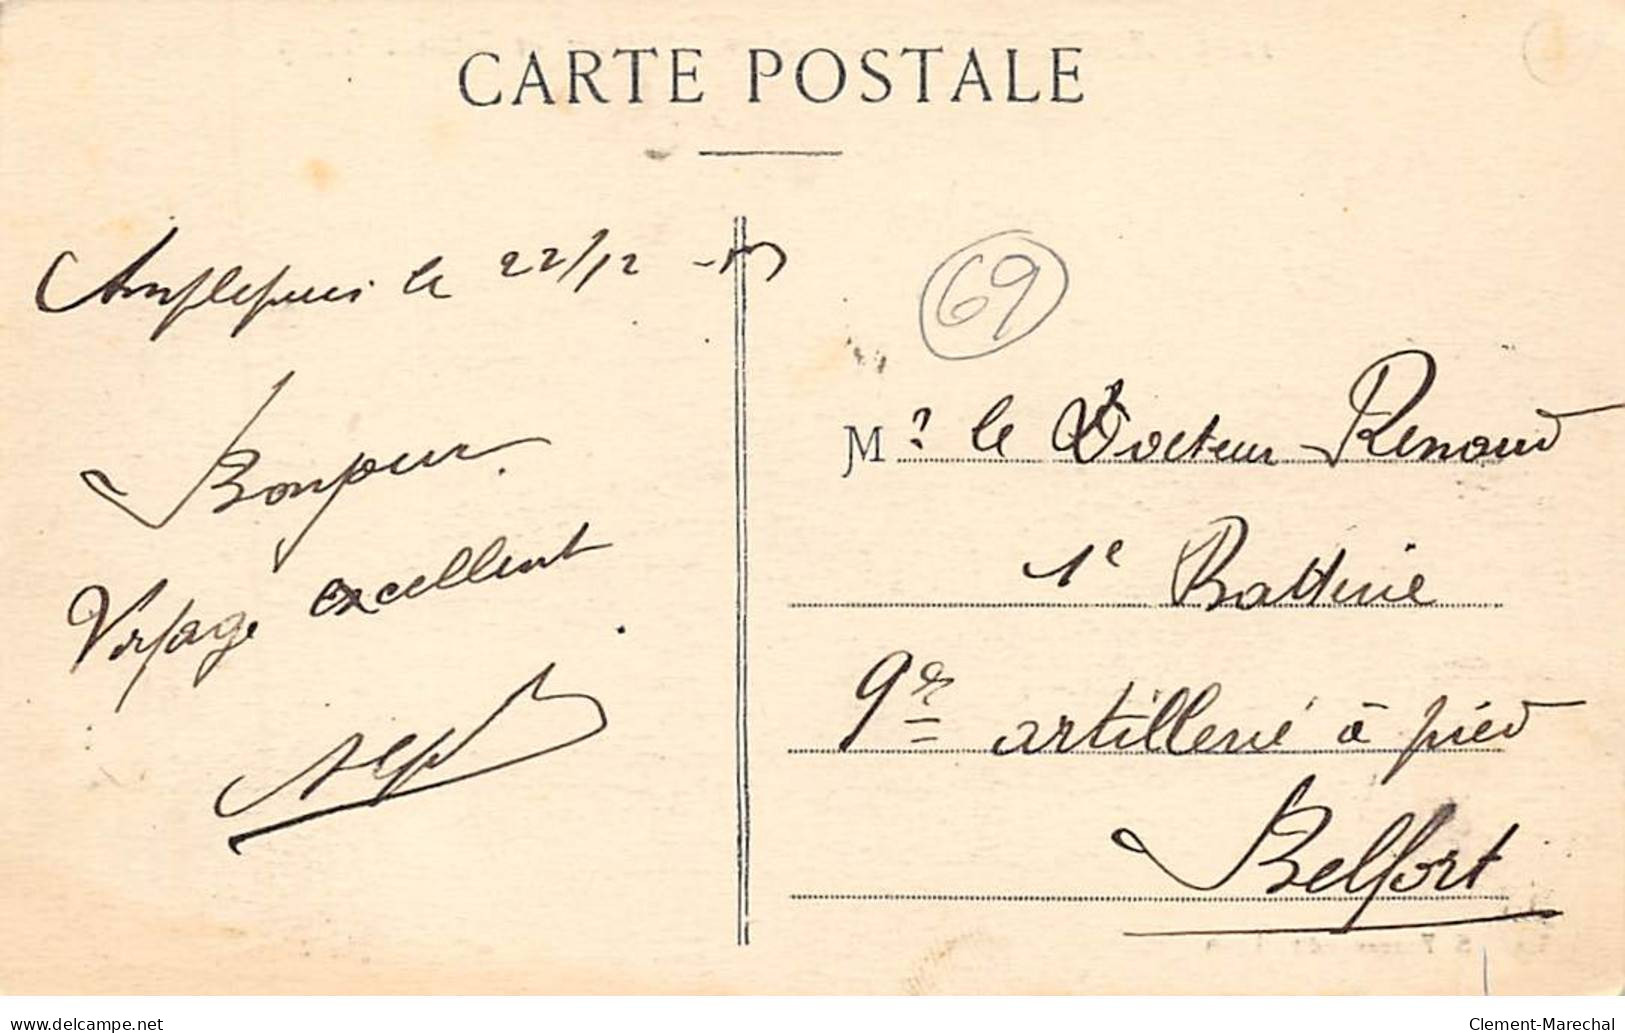 CARTE POSTALE
Amplepuis le 22/12
Bonjour.
Voyage excellent
69
M r le Docteur Renaud
1e Batterie
9e artillerie à pied
Belfort
delcampe.net
Clement-Marechal